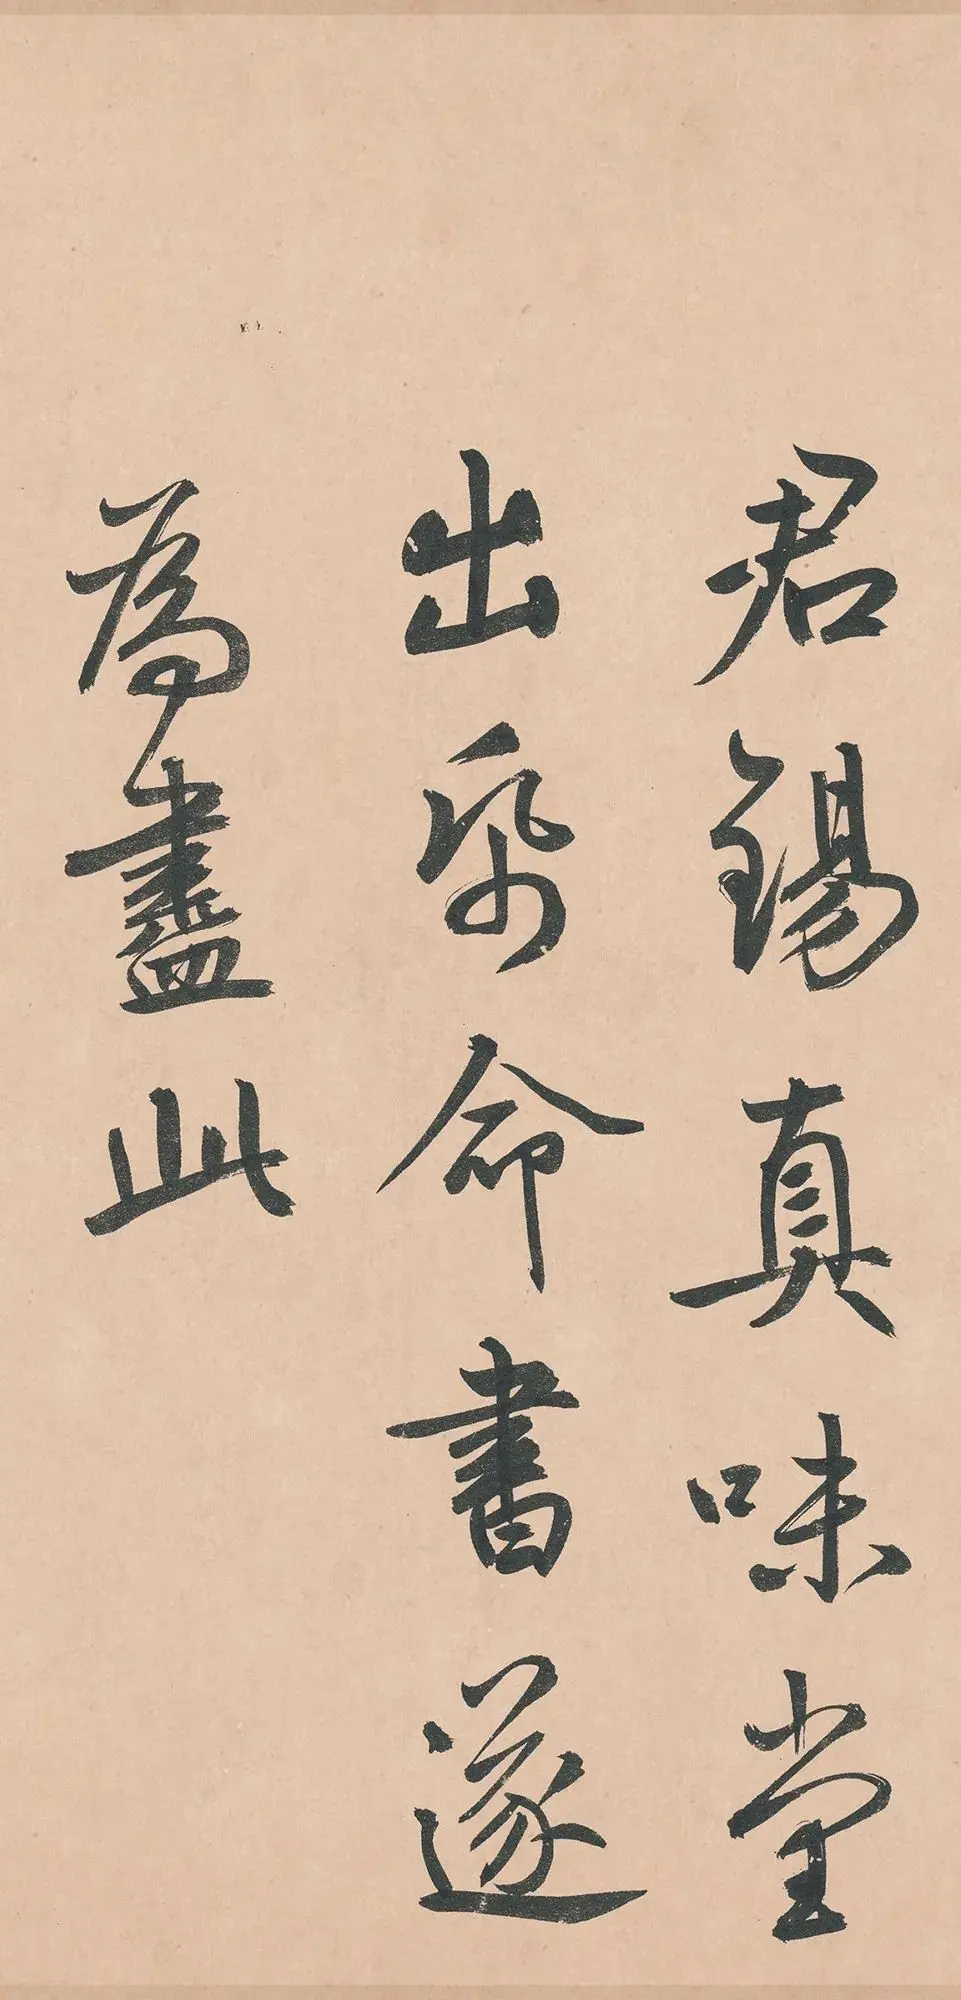 君錫真味堂
出帋命書遂
為盡此